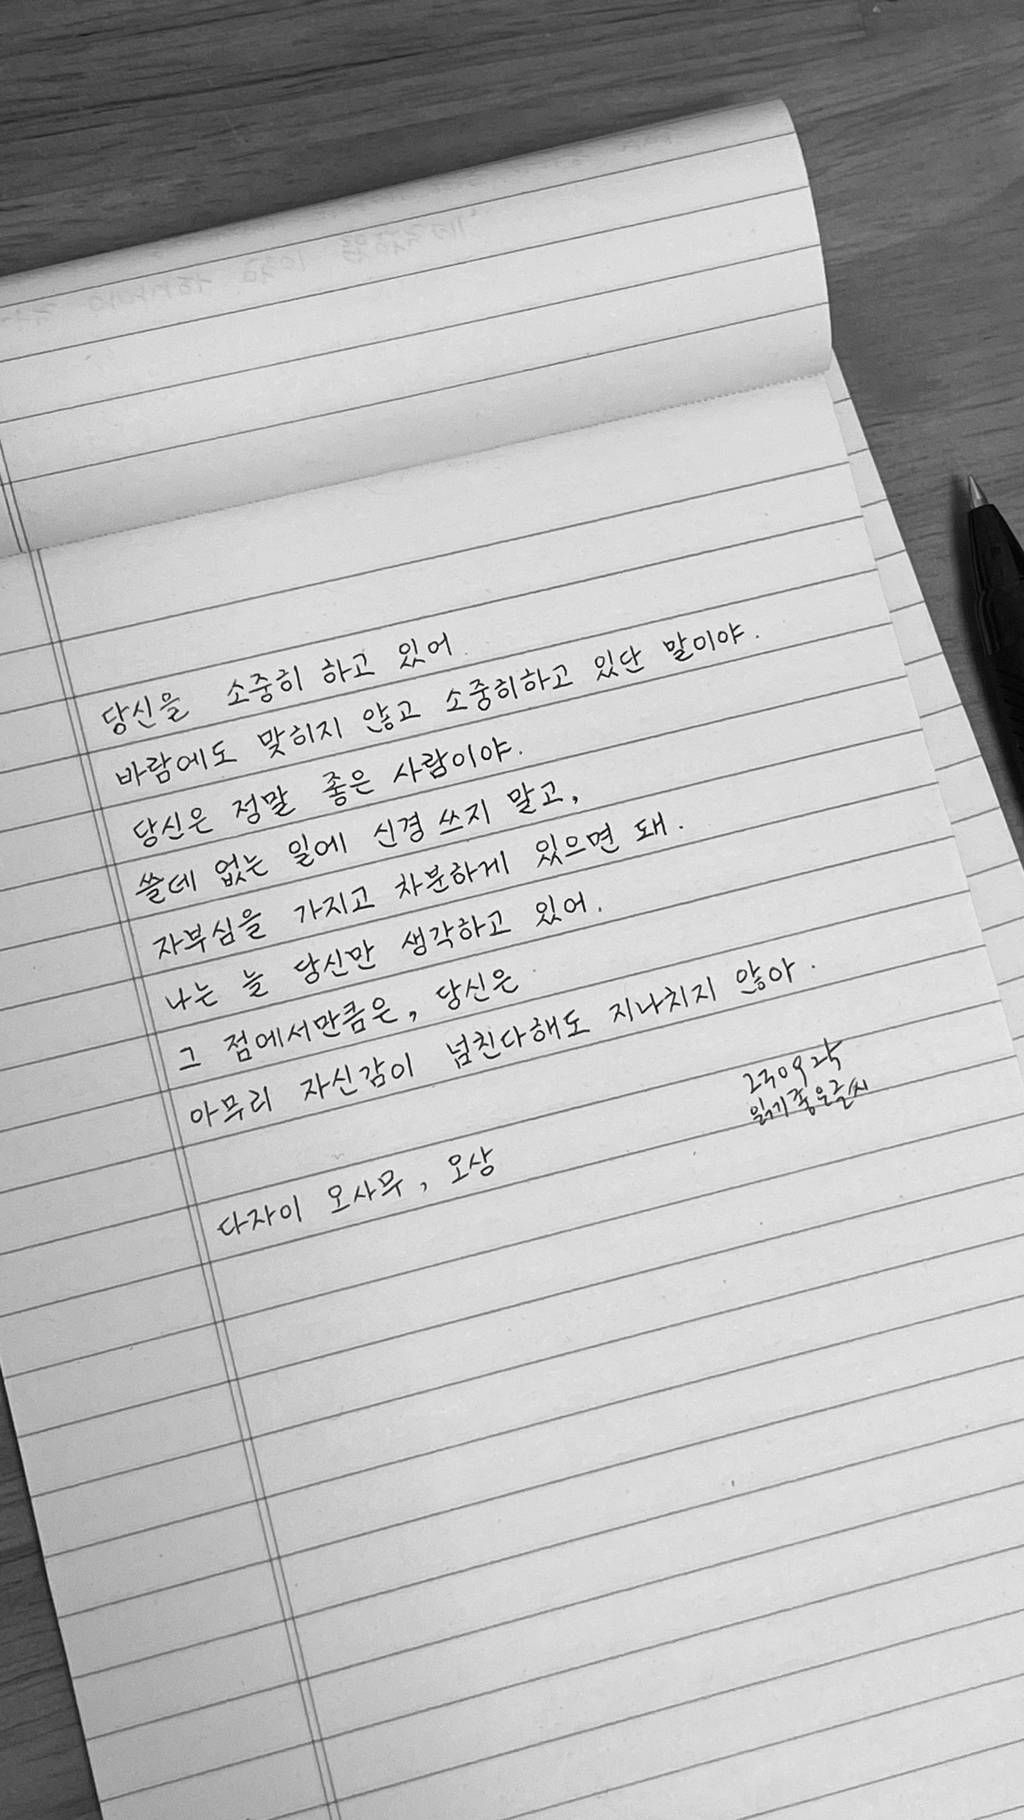 당신을 소중히 하고 있어.
바람에도 맞히지 않고 소중히하고 있단 말이야.
당신은 정말 좋은 사람이야.
쓸데 없는 일에 신경 쓰지 말고,
자부심을 가지고 차분하게 있으면 돼.
나는 늘 당신만 생각하고 있어.
그 점에서만큼은, 당신은
아무리 자신감이 넘친다해도 지나치지 않아.
읽기좋은글씨
다자이 오사무, 오상